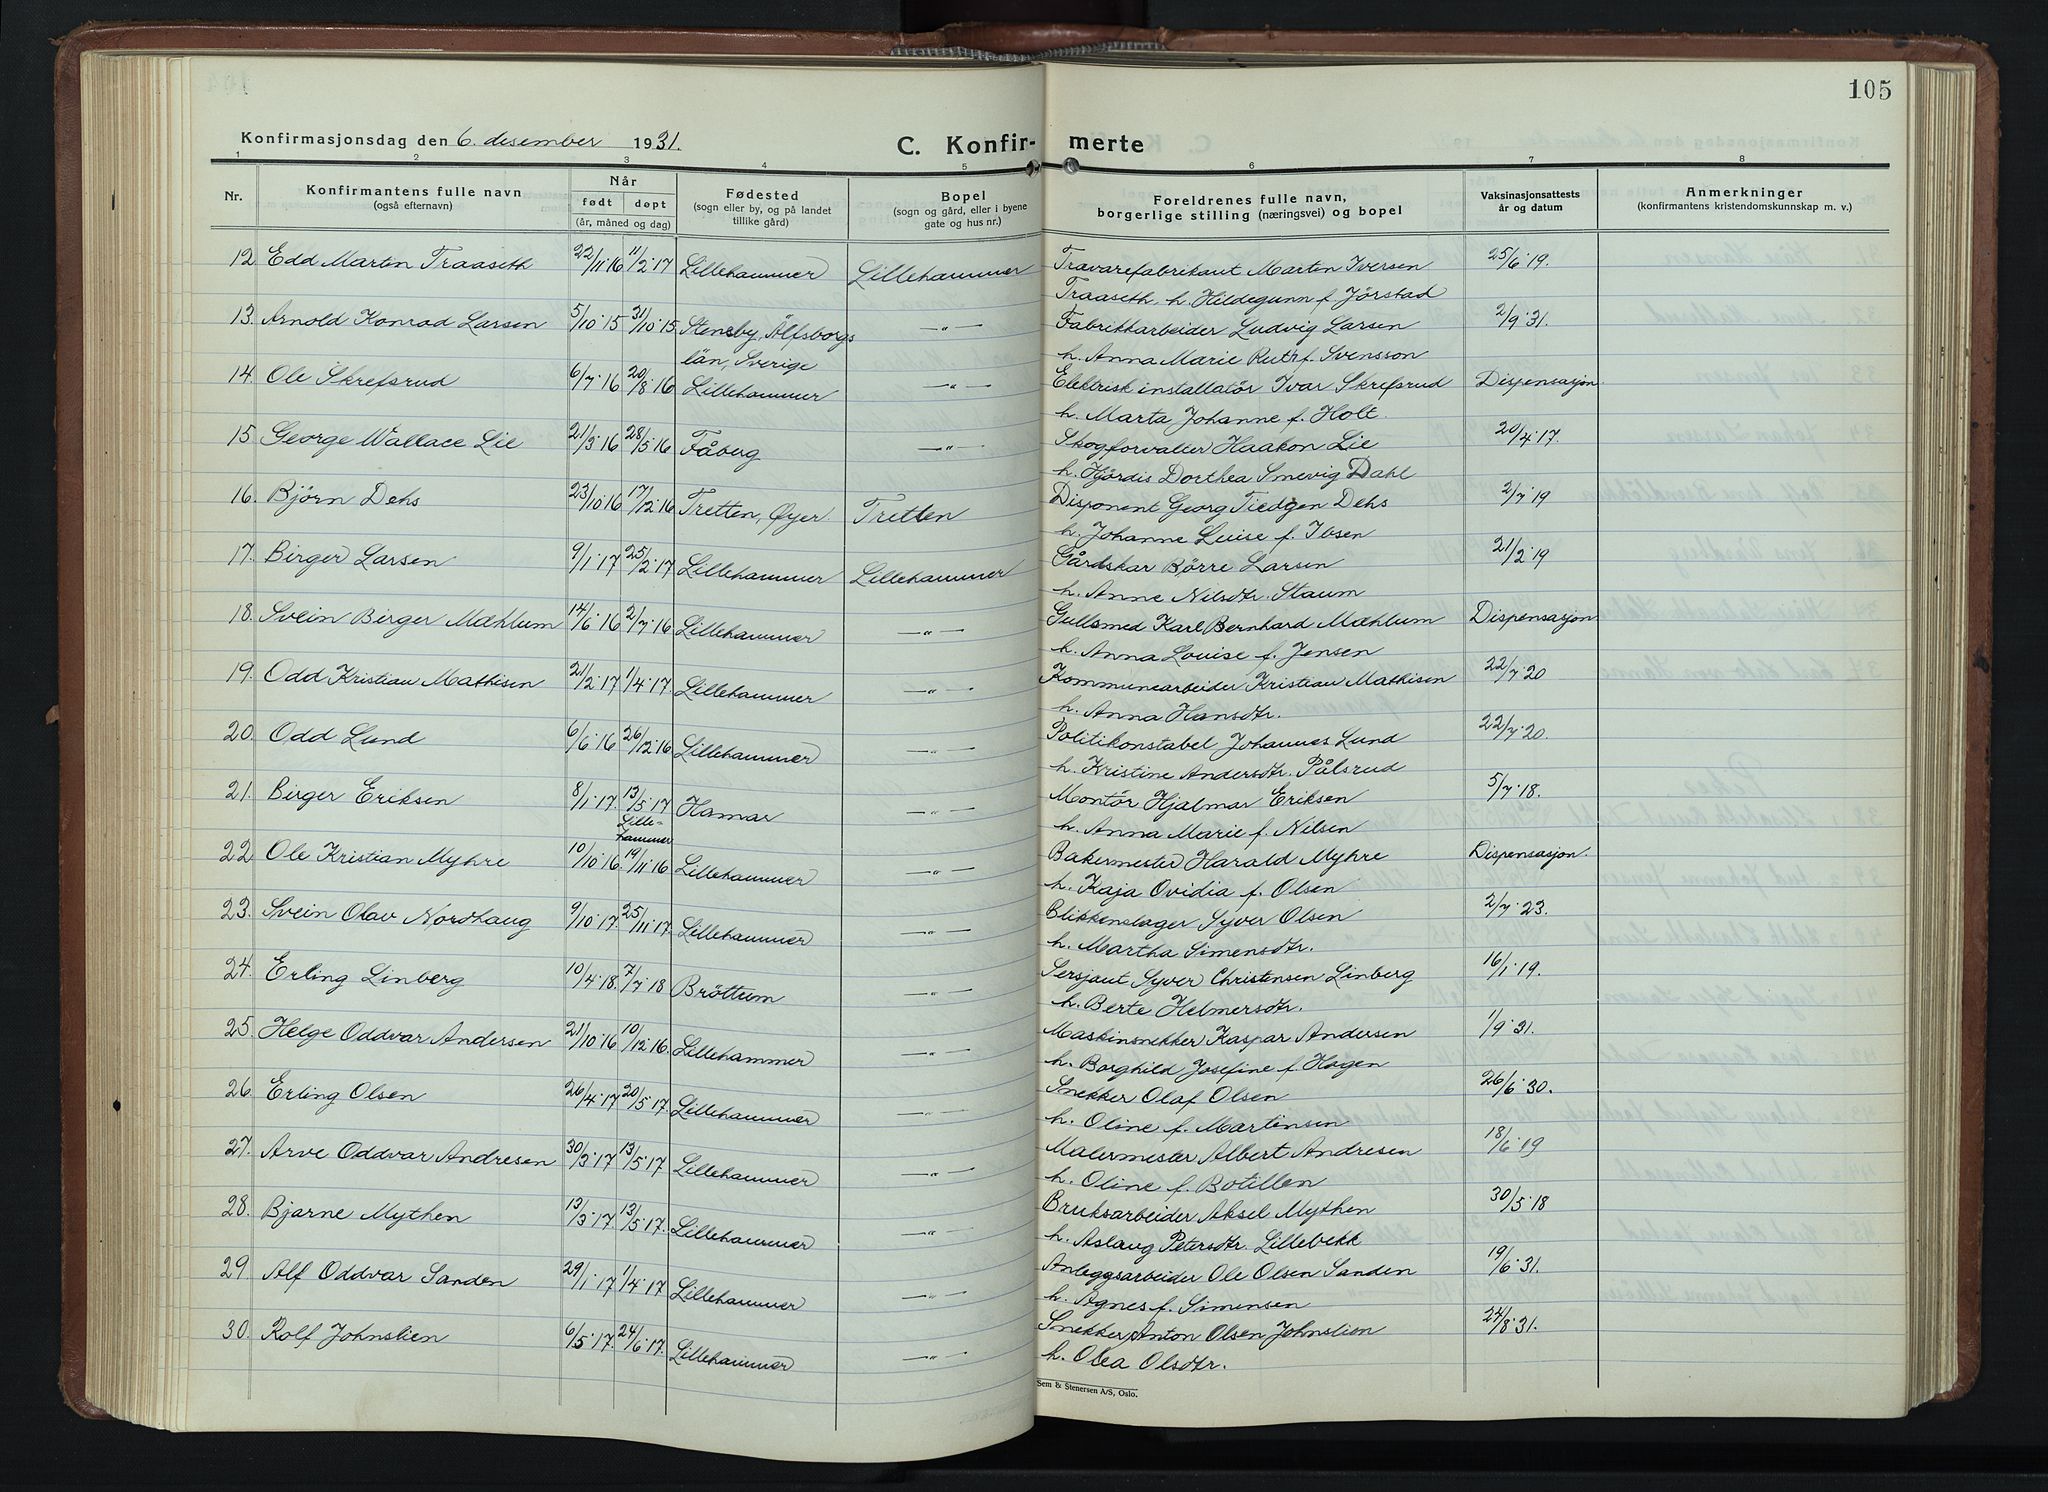 105
Konfirmasjonsdag den 6. desember 1931. C. Konfir- merte
1 2 3 4 5 6 7 8
Nr. Konfirmantens fulle navn (også efternavn) Når født døpt (år, måned og dag) Fødested (sogn eller by, og på landet tillike gård) Bopel (sogn og gård, eller i byene gate og hus nr.) Foreldrenes fulle navn, borgerlige stilling (næringsvei) og bopel Vaksinasjonsattests år og datum Anmerkninger (konfirmantens kristendomskunnskap m. v.)
12. Edd Martin Traaseth 22/11·16 11/2·17 Lillehammer Lillehammer Travarefabrikant Martin Iversen 25/6·19.
Traaseth, h. Hildegunn f. Jörstad
13. Arnold Konrad Larsen 5/10·15 31/10·15 Stensby, Älfsborgs —"— Fabrikkarbeider Ludvig Larsen 2/9·31.
län, Sverige h. Anna Marie Rut f. Svensson
14. Ole Skrefsrud 6/7·16 20/8·16 Lillehammer —"— Elektrisk installatör Ivar Skrefsrud Dispensasjon.
h. Marta Johanne f. Holt.
15. George Wallace Lie 21/3·16 28/5·16 Fåberg —"— Skogforvalter Haakon Lie 20/4·17.
h. Hjördis Dorthea Smevig Dahl
16. Björn Dehs 23/10·16 17/12·16 Tretten, Øyer. Tretten Disponent Georg Tiedgen Dehs 2/7·19
h. Johanne Luise f. Ibsen
17. Birger Larsen 9/1·17 25/2·17 Lillehammer Lillehammer Gårdskar Børre Larsen 21/2·19
h. Anne Nilsdtr. Staum
18. Svein Birger Mæhlum 14/6·16 2/7·16 Lillehammer —"— Gullsmed Karl Bernhard Mæhlum Dispensasjon
h. Anna Louise f. Jensen
19. Odd Kristian Mathisen 21/2·17 1/4·17 Lillehammer —"— Kommunearbeider Kristian Mathisen 22/7·20
h. Anna Hansdtr.
20. Odd Lund 6/6·16 26/12·16 Lillehammer —"— Politikonstabel Johannes Lund 22/7·20.
h. Kristine Andersdtr. Pålsrud
21. Birger Eriksen 8/1·17. 13/5·17 Hamar —"— Montör Hjalmar Eriksen 5/7·18.
Lille-
hammer h. Anna Marie f. Nilsen
22. Ole Kristian Myhre 10/10·16. 19/11·16 Lillehammer —"— Bakermester Harald Myhre Dispensasjon.
h. Kaja Ovidia f. Olsen
23. Svein Olav Nordhaug 9/10·17. 25/11·17. Lillehammer —"— Blikkenslager Syver Olsen 2/7·23.
h. Martha Simensdtr.
24. Erling Linberg 10/4·18. 7/7·18 Bröttum —"— Sersjant Syver Christensen Linberg 16/1·19.
h. Berte Helmersdtr.
25. Helge Oddvar Andersen 21/10·16 10/12·16. Lillehammer —"— Maskinsnekker Kaspar Andersen 1/9·31.
h. Borghild Josefine f. Hagen
26. Erling Olsen 26/4·17 20/5·17. Lillehammer —"— Snekker Olaf Olsen 26/6·30.
h. Oline f. Martinsen
27. Arve Oddvar Andresen 30/3·17 13/5·17 Lillehammer —"— Malermester Albert Andresen 18/6·19
h. Oline f. Botillen
28. Bjarne Mythen 13/3·17. 13/5·17. Lillehammer —"— Bruksarbeider Aksel Mythen 30/5·18
h. Aslaug Petersdtr. Lillebekk
29. Alf Oddvar Sanden 29/1·17 1/4·17 Lillehammer —"— Anleggsarbeider Ole Olsen Sanden 19/6·31.
h. Agnes f. Simensen
30. Rolf Johnslien 6/5·17. 24/6·17. Lillehammer —"— Snekker Anton Olsen Johnslien 24/8·31.
h. Olea Olsdtr.
Sem & Stenersen A/S, Oslo.